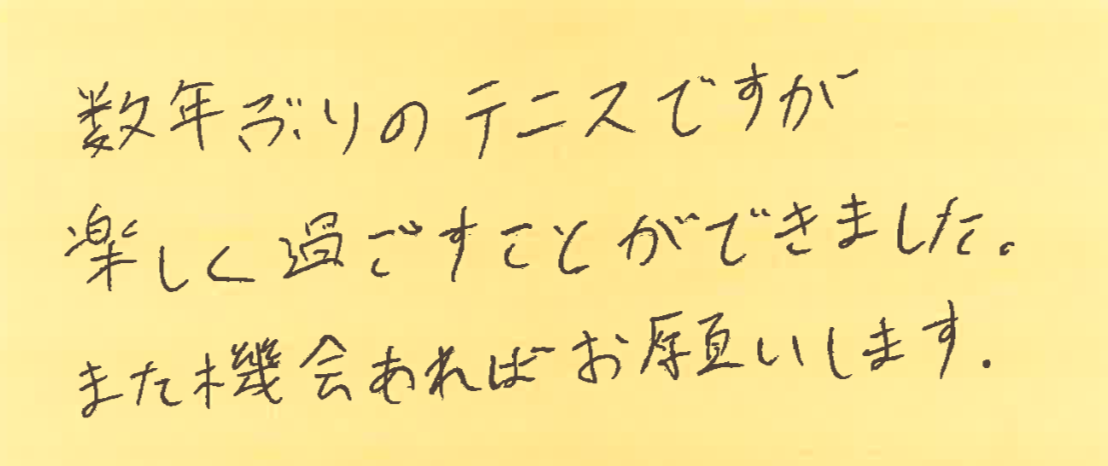 数年ぶりのテニスですが
楽しく過ごすことができました。
また機会あればお願いします.